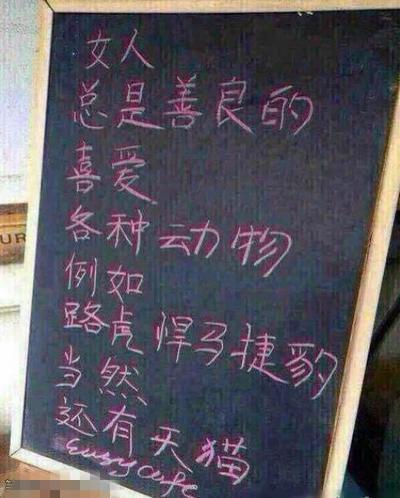 女人
总是善良的
喜爱
各种动物
例如
路虎 悍马捷豹
当然
还有天猫
UR